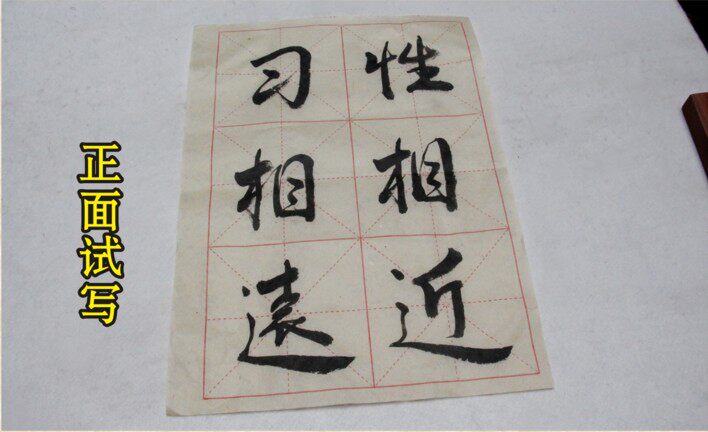 性相近
习相遠
正面试写